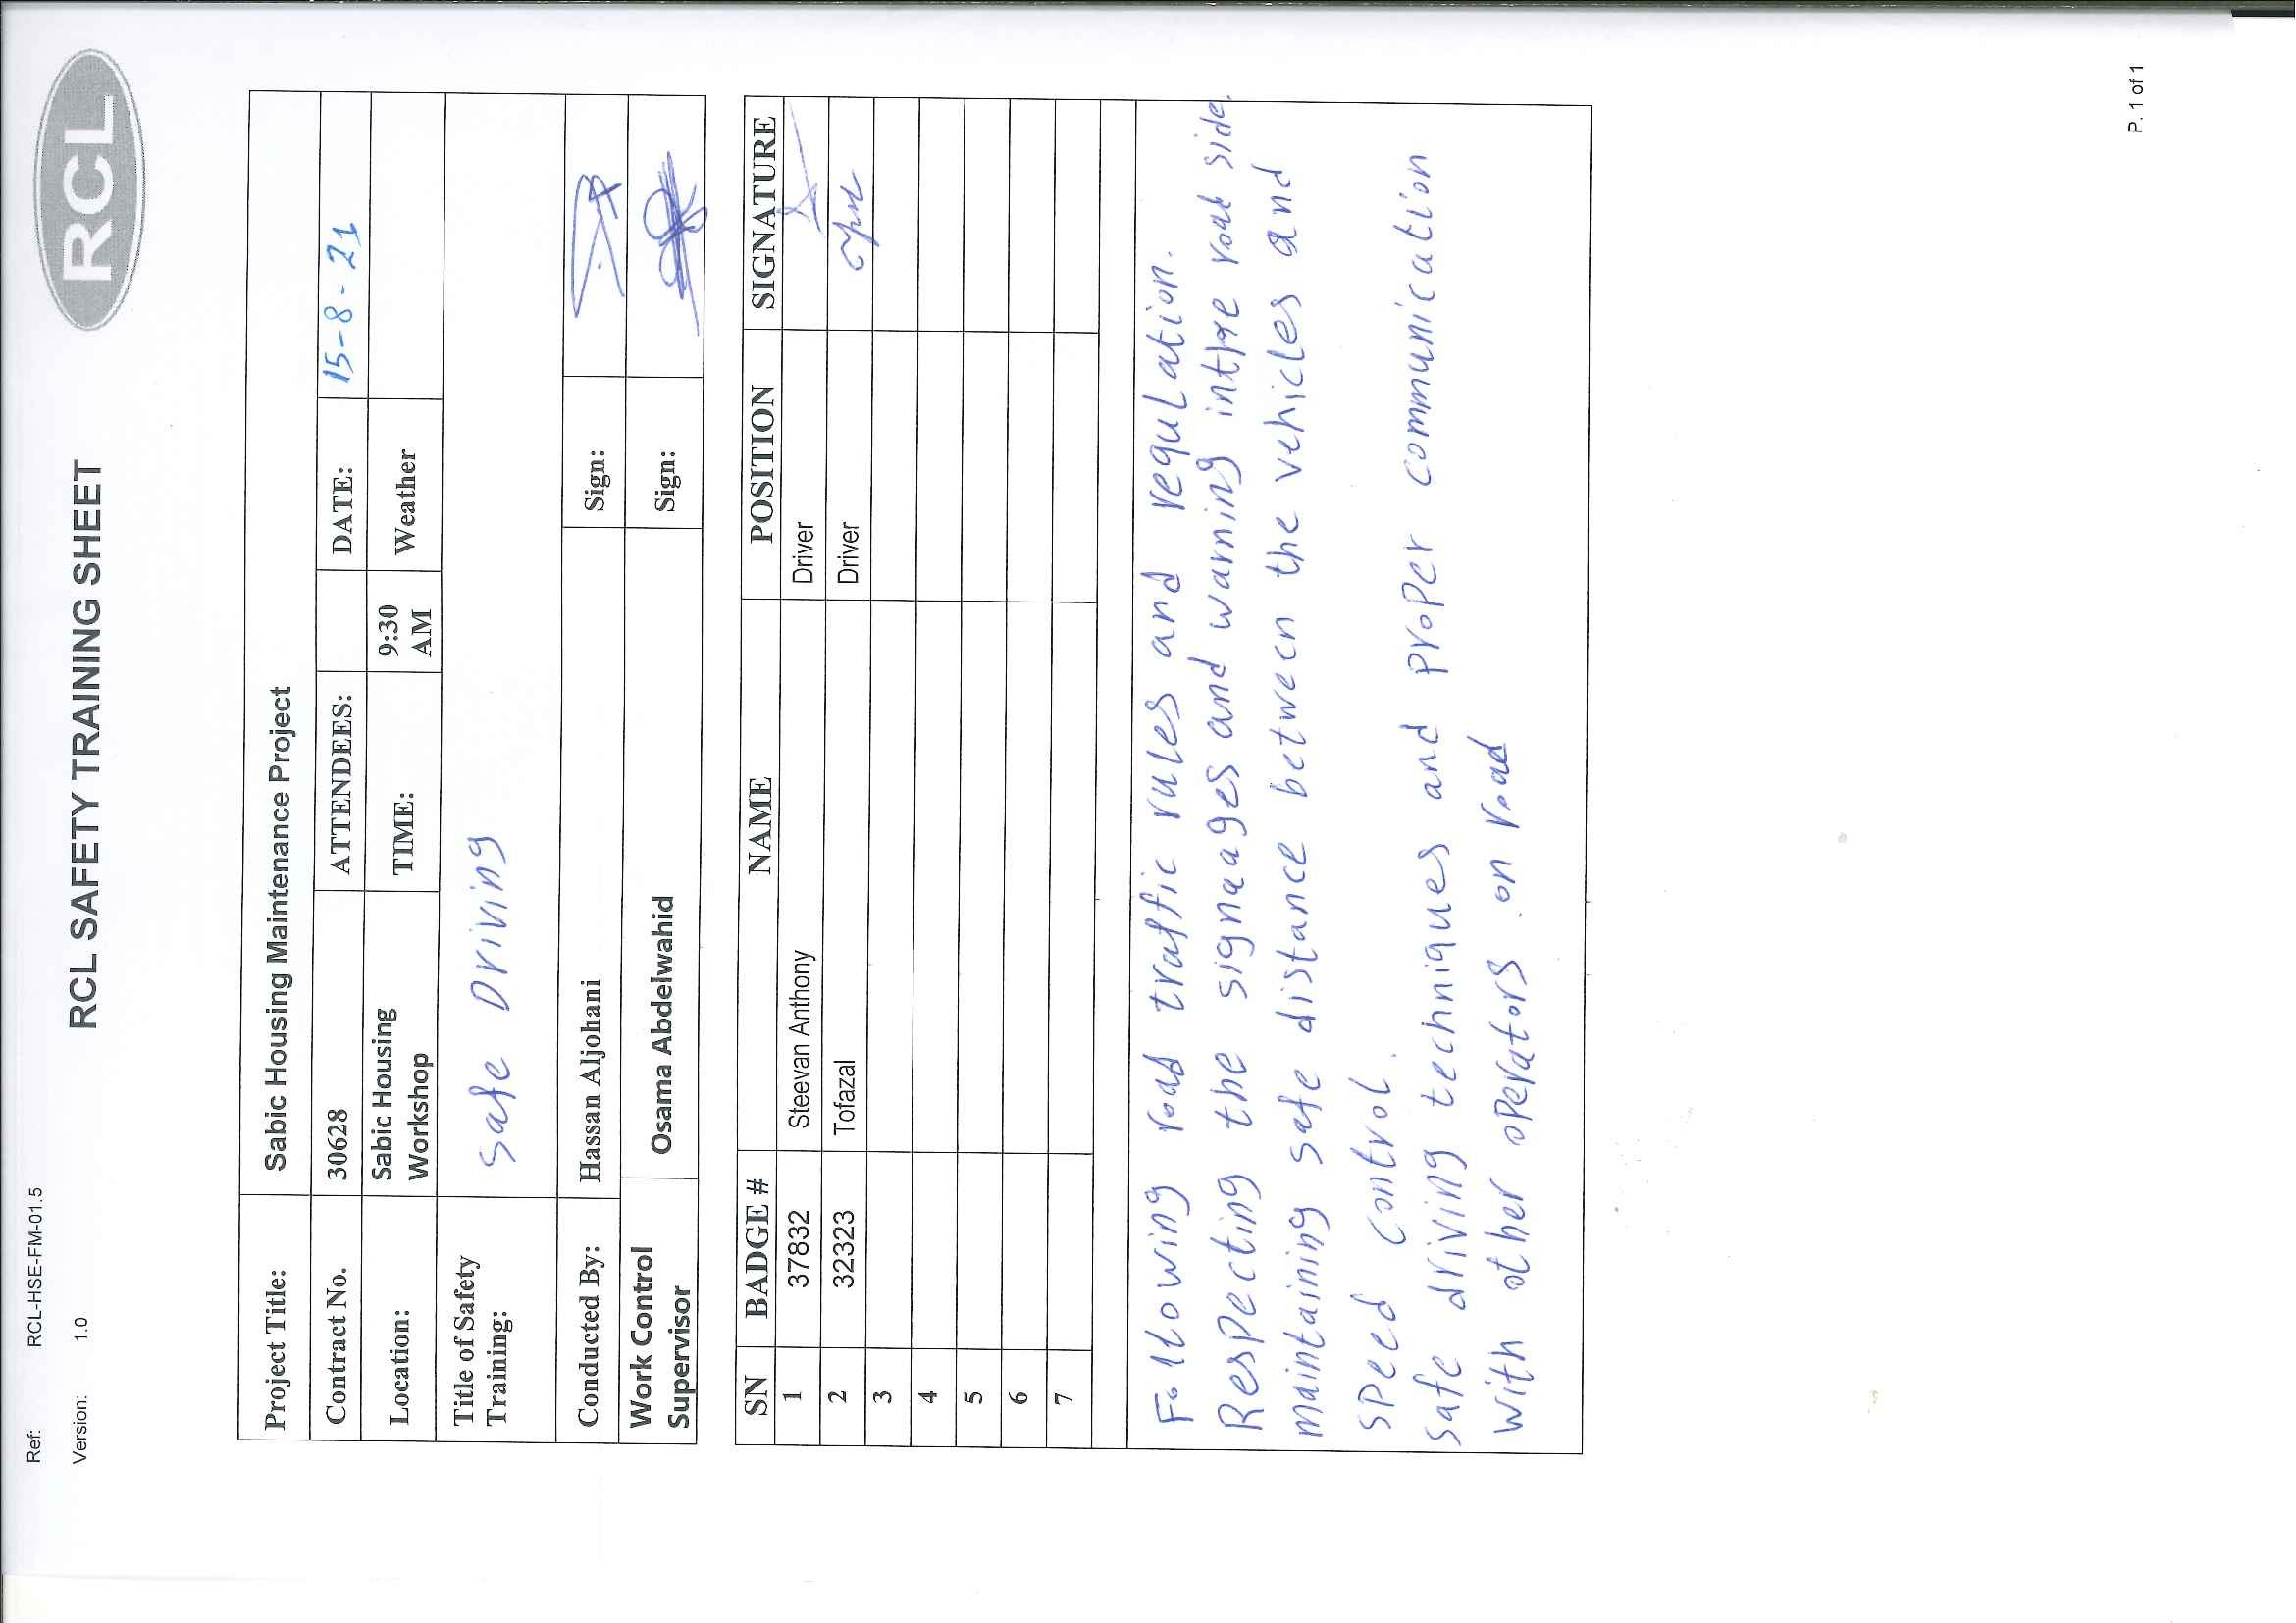 Ref: RCL-HSE-FM-01.5
Version: 1.0
RCL SAFETY TRAINING SHEET
RCL
Project Title: Sabic Housing Maintenance Project
Contract No. 30628 ATTENDEES: DATE: 15-8-21
Location: Sabic Housing Workshop TIME: 9:30 AM Weather
Title of Safety Training: Safe Driving
Conducted By: Hassan Aljohani Sign:
Work Control Supervisor Osama Abdelwahid Sign:
SN BADGE # NAME POSITION SIGNATURE
1 37832 Steevan Anthony Driver
2 32323 Tofazal Driver
3
4
5
6
7
Following road traffic rules and regulation.
Respecting the signages and warning in the road side.
maintaining safe distance between the vehicles and
speed control.
safe driving techniques and proper communication
with other operators on road
P. 1 of 1